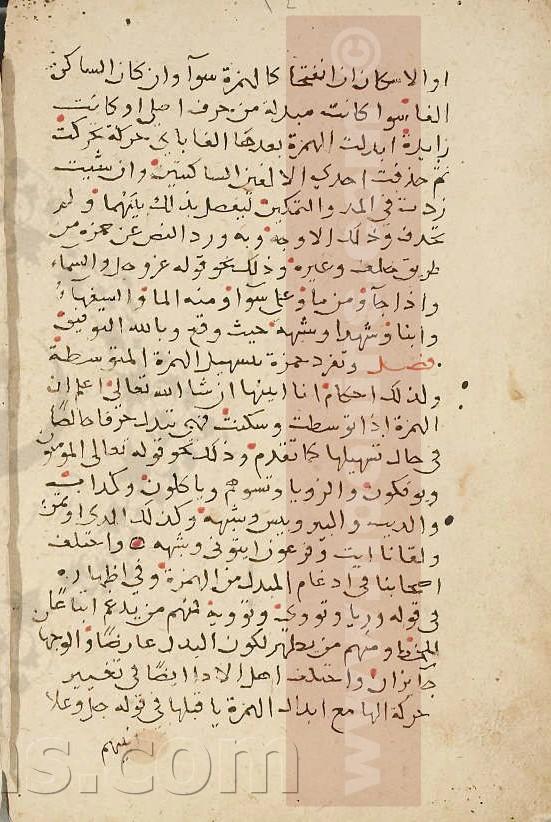 او الاسكان ان انفتحا كالهمزة سوآ وان كان الساكن
الفا سوا كانت مبدلة من حرف اصلي او كانت
زايدة ابدلت الهمزة بعدها الفا باى حركة تحركت
ثم حذفت احدى الالفين الساكنتين وان شئت
زدت في المد والتمكين ليفصل بذلك بينهما ولم
تحذف وذلك الاوجه وبه ورد النص عن حمزة من
طريق خلف وغيره وذلك نحو قوله عز وجل والسماء
واذا جآ ومن ما وعلى سوآ ومنه الما والسفهاء
وابنا وشهدا وشبهه حيث وقع وبالله التوفيق
فصل وتفرد حمزة بتسهيل الهمزة المتوسطة
ولذلك احكام انا ابينها ان شا الله تعالى اعلم ان
الهمزة اذا توسطت وسكنت فهي تبدل حرفا خالصًا
في حال تسهيلها كما تقدم وذلك نحو قوله تعالى المومنون
ويوفكون والرويا وتسوهم وياكلون وكداب
والذيب والبير وبيس وشبهه وكذلك الذى اوتمن
ولقانا ايت وفرعون ايتونى وشبهه واختلف
اصحابنا في ادغام المبدل من الهمزة وفي اظهاره
في قوله وريا وتووى وتوويه فمنهم من يدغم اتباعًا
للخط ومنهم من يظهر لكون البدل عارضًا والوجها
جآيزان واختلف اهل الادا ايضًا في تغيير
حركة الها مع ابدال الهمزة يا قبلها في قوله جل وعلا
ns.com